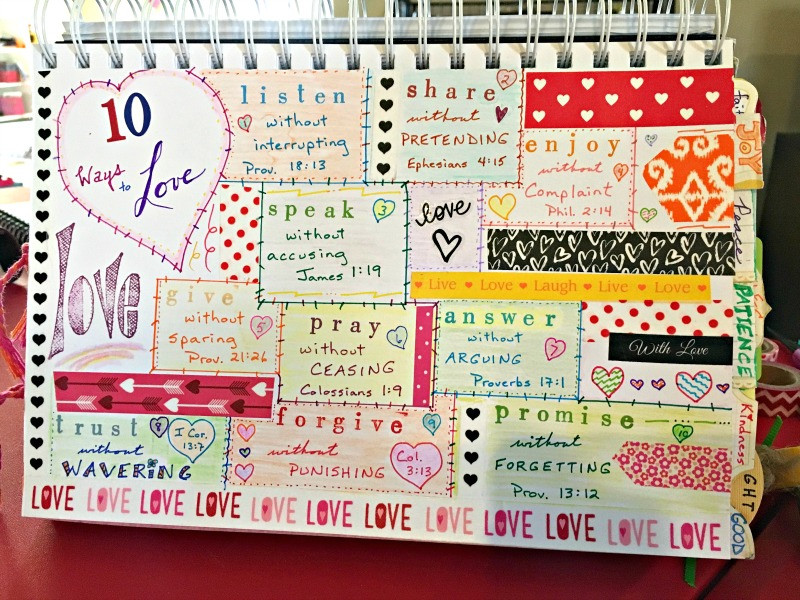 10
Ways to Love
listen
1
without
interrupting
Prov. 18:13
share
2
without
PRETENDING
Ephesians 4:15
enjoy
without
4
Complaint
Phil. 2:14
speak
3
without
accusing
James 1:19
love
love
Live ♥ Love ♥ Laugh ♥ Live ♥ Love ♥
give
without
5
sparing
Prov. 21:26
pray
6
without
CEASING
Colossians 1:9
answer
without
7
ARGUING
Proverbs 17:1
With Love
trust
8
I Cor.
13:7
without
WAVERING
forgive
9
without
PUNISHING
Col.
3:13
promise
10
without
FORGETTING
Prov. 13:12
LOVE LOVE LOVE LOVE LOVE LOVE LOVE LOVE LOVE LOVE LOVE LOVE LOVE
JOY
Peace
PATIENCE
Kindness
GOOD